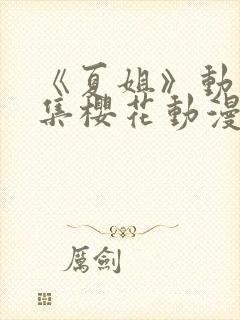 《夏姐》動
集櫻花動漫
厲劍